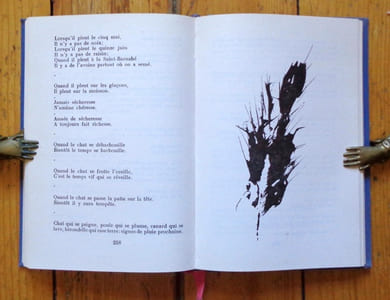 Lorsqu'il pleut le cinq mai,
Il n'y a pas de noix;
Lorsqu'il pleut le quinze juin
Il n'y a pas de raisin;
Quand il pleut à la Saint-Barnabé
Il y a de l'avoine partout où on a semé.
Quand il pleut sur les glaçons,
Il pleut sur la moisson.
Jamais sécheresse
N'amène chétesse.
Année de sécheresse
A toujours fait richesse.
Quand le chat se débarbouille
Bientôt le temps se barbouille.
Quand le chat se frotte l'oreille,
C'est le temps vif qui se réveille.
Quand le chat se passe la patte sur la tête,
Bientôt il y aura tempête.
Chat qui se peigne, poule qui se plume, canard qui se
lave, hirondelle qui rase terre: signes de pluie prochaine.
258